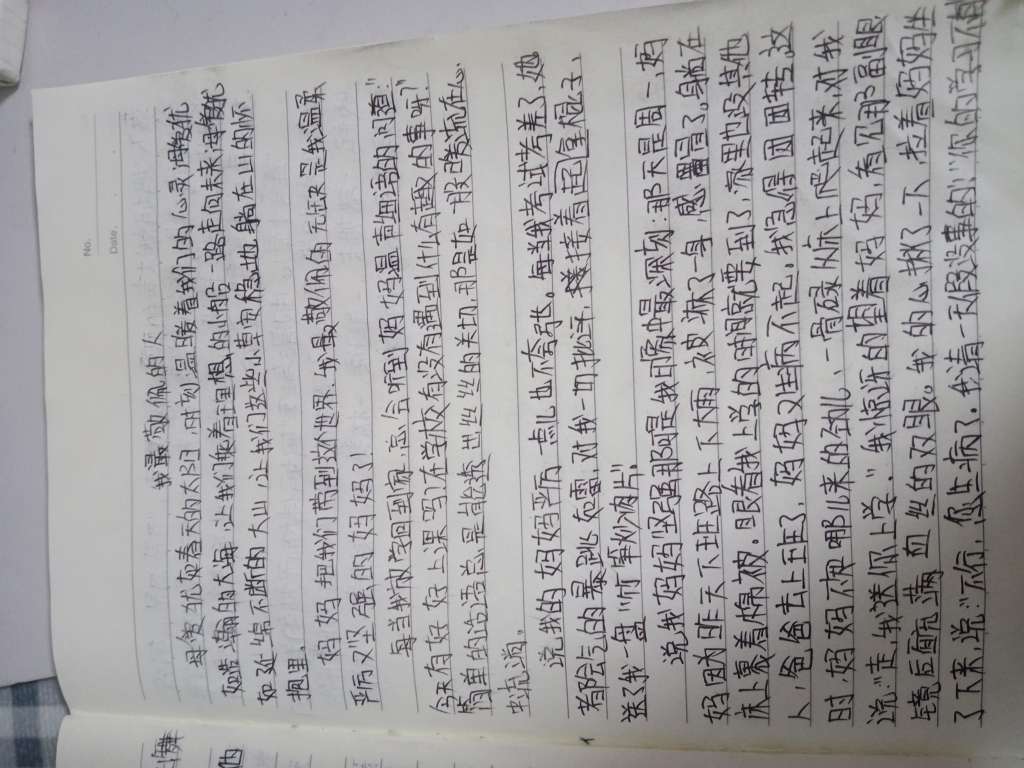 No.
Date.
我最敬佩的人
母爱犹如春天的太阳,时刻温暖着我们的心灵;母爱犹
如浩瀚的大海,让我们乘着理想的小船一路直向未来;母爱犹
如延绵不断的大山,让我们这些小草安稳地躺在山的怀
抱里。
妈妈,把我们带到这个世界,我最敬佩的无疑是我温柔
严厉又坚强的妈妈了!
每当我放学回到家,总会听到妈妈温声细语的问道:"
今天有好好上课吗?在学校有没有遇到什么有趣的事呀?"
简里的论语总是能掺进丝丝的关切,那温在一股暖流在心
中流淌。
说我的妈妈严厉一点儿也不夸张。每当我考试考差了,她
都会气的暴跳如雷,对我一切批评,接着起直锅子、
送了我一盘"竹笋炒肉片",
说我妈妈坚强那可是我印象最深刻:那天是周一,妈
妈因为昨天下班路上下大雨,被淋了一身,感冒了,躺在
床上裹着棉被。眼看我上学的时间就要到了,家里也没其他
人,爸爸去上班了,妈妈又生病不起,我急得团团转,这
时,妈妈不知哪儿来的劲儿,一骨碌从床上爬起来,对我
说:"走,我送你上学。"我惊讶的望着妈妈,看见那副眼
镜后面布满血丝的双眼。我的心揪了一下,拉着妈妈坐
了下来,说:"不行,您生病了。我请一天假没事的""你的学习不但